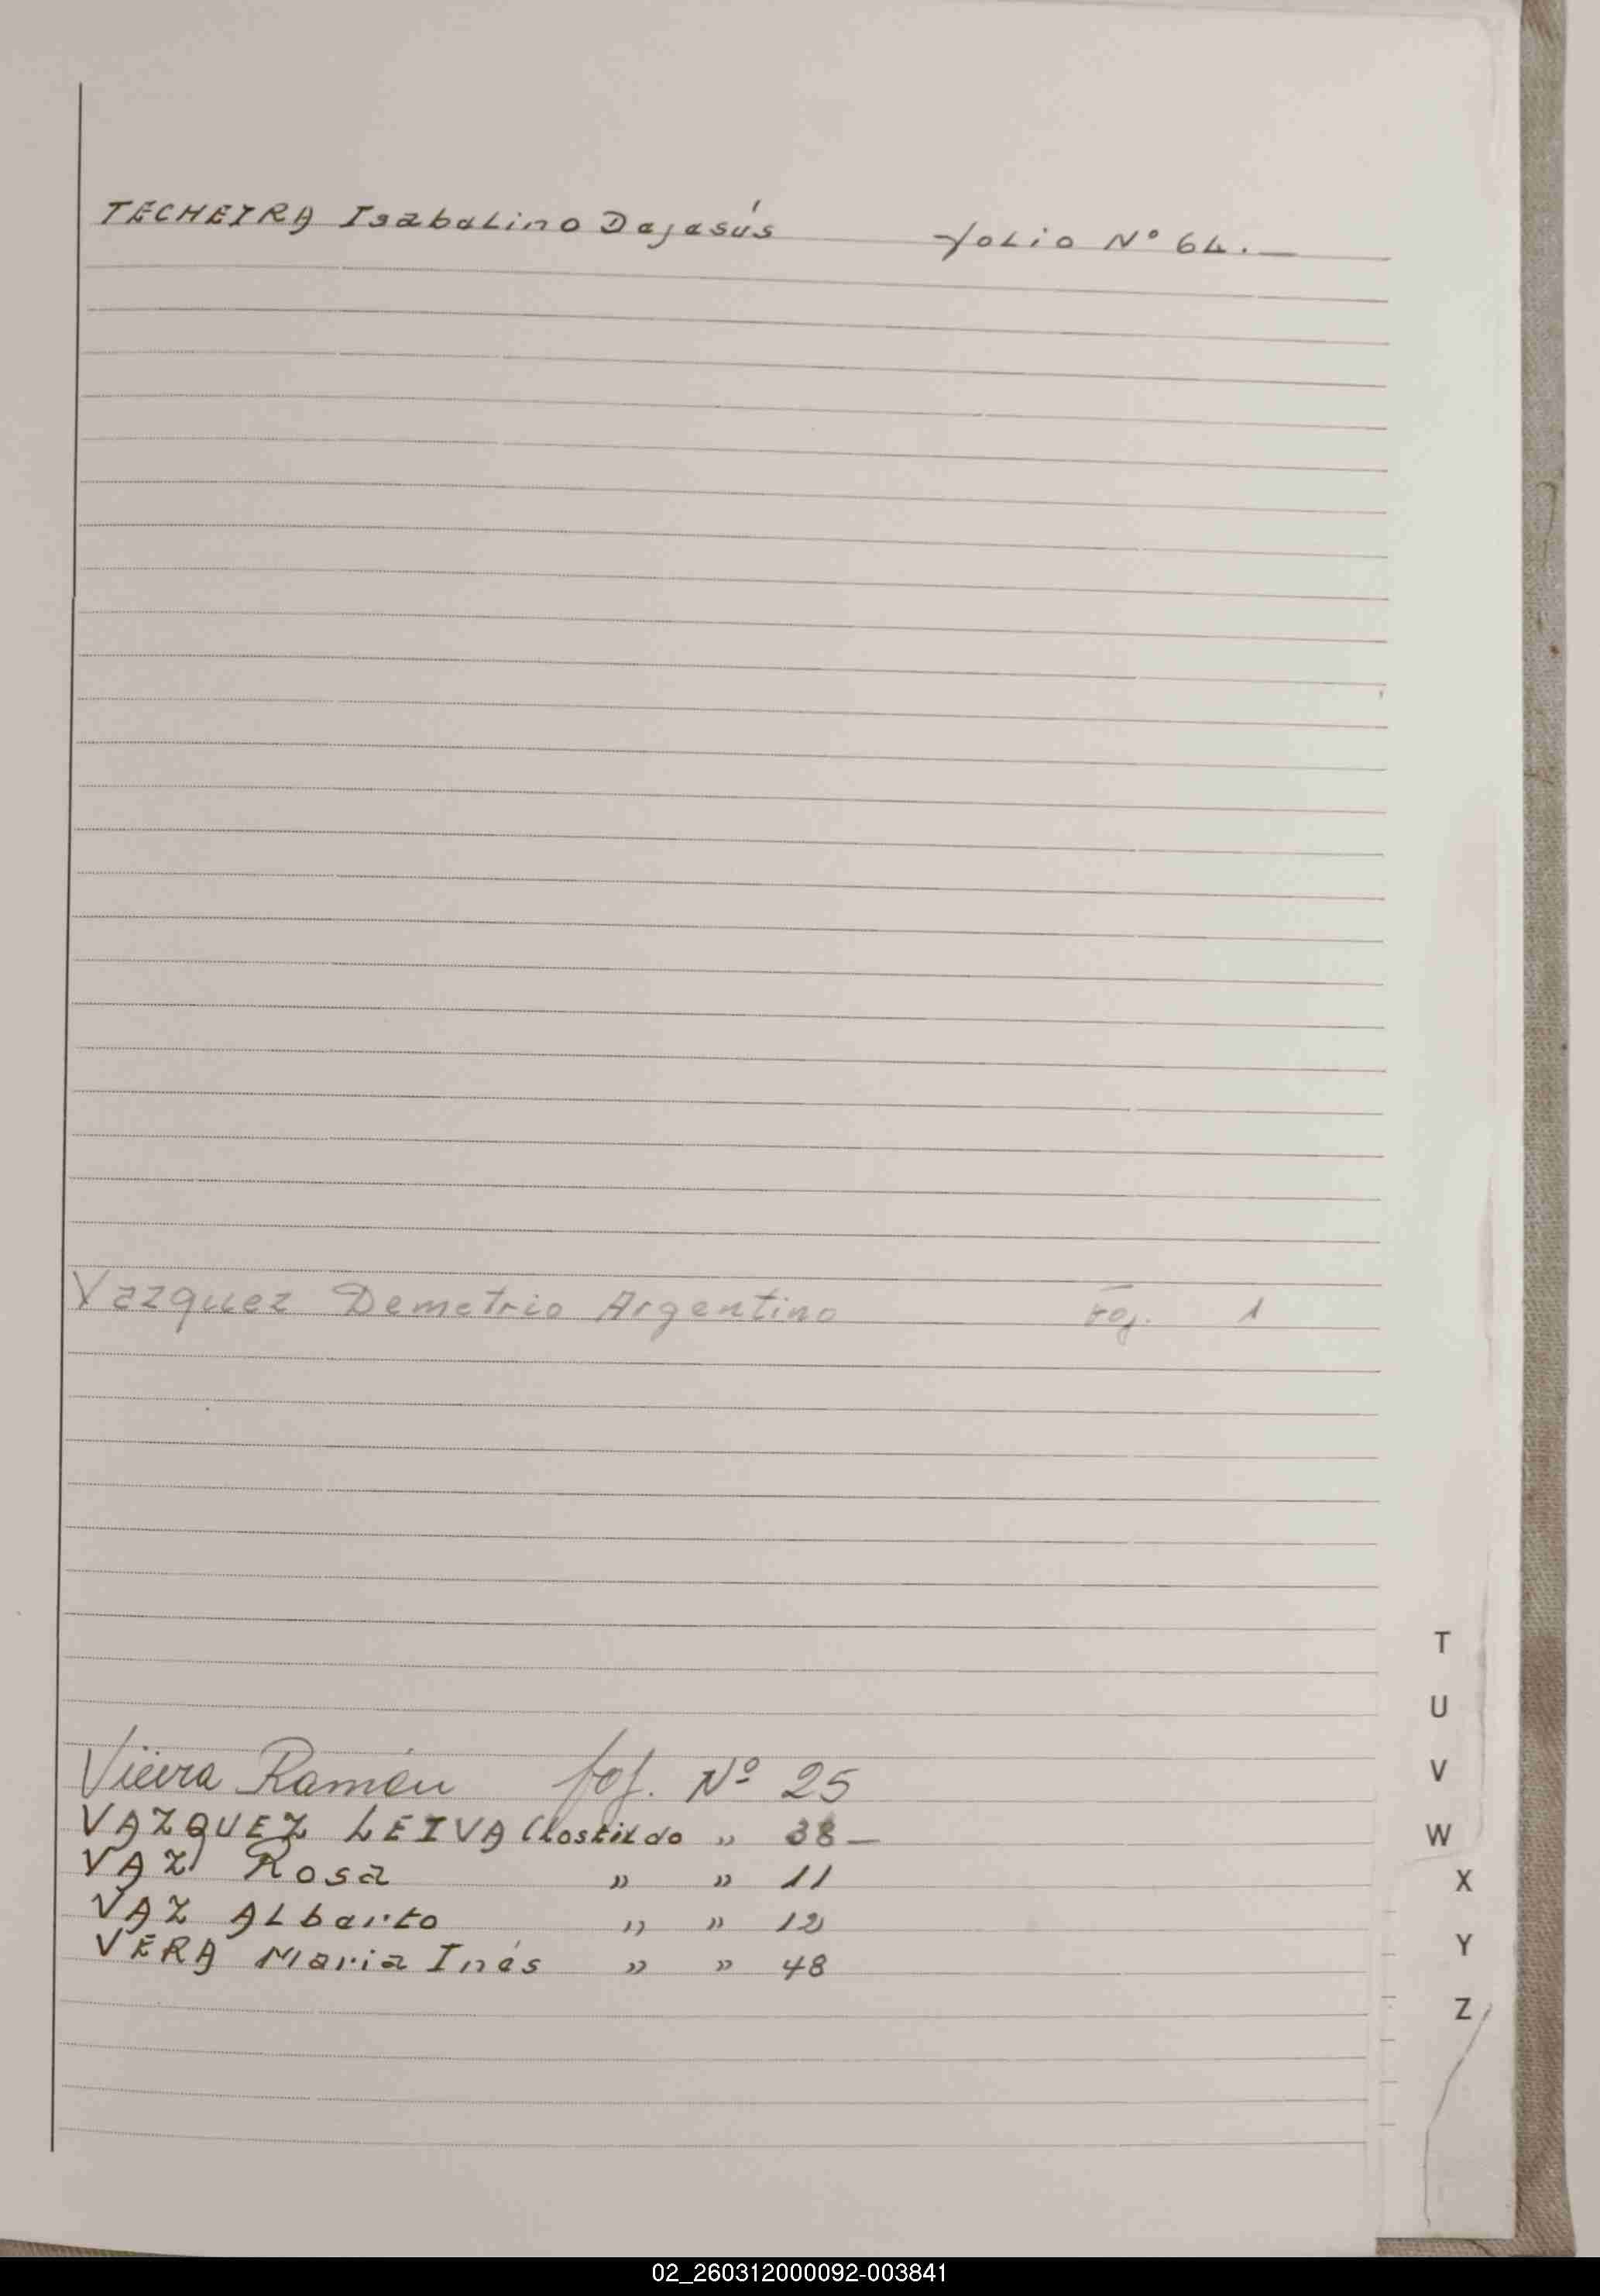 TECHEIRA Isabelino Dejesús folio Nº 64.—
Vazquez Demetrio Argentino Foj. 1
T
U
Vieira Ramón foj. Nº 25
V
VAZQUEZ LEIVA Clostildo " 38 —
W
VAZ Rosa " " 11
X
VAZ Alberto " " 12
Y
VERA Maria Inés " " 48
Z
02_260312000092-003841